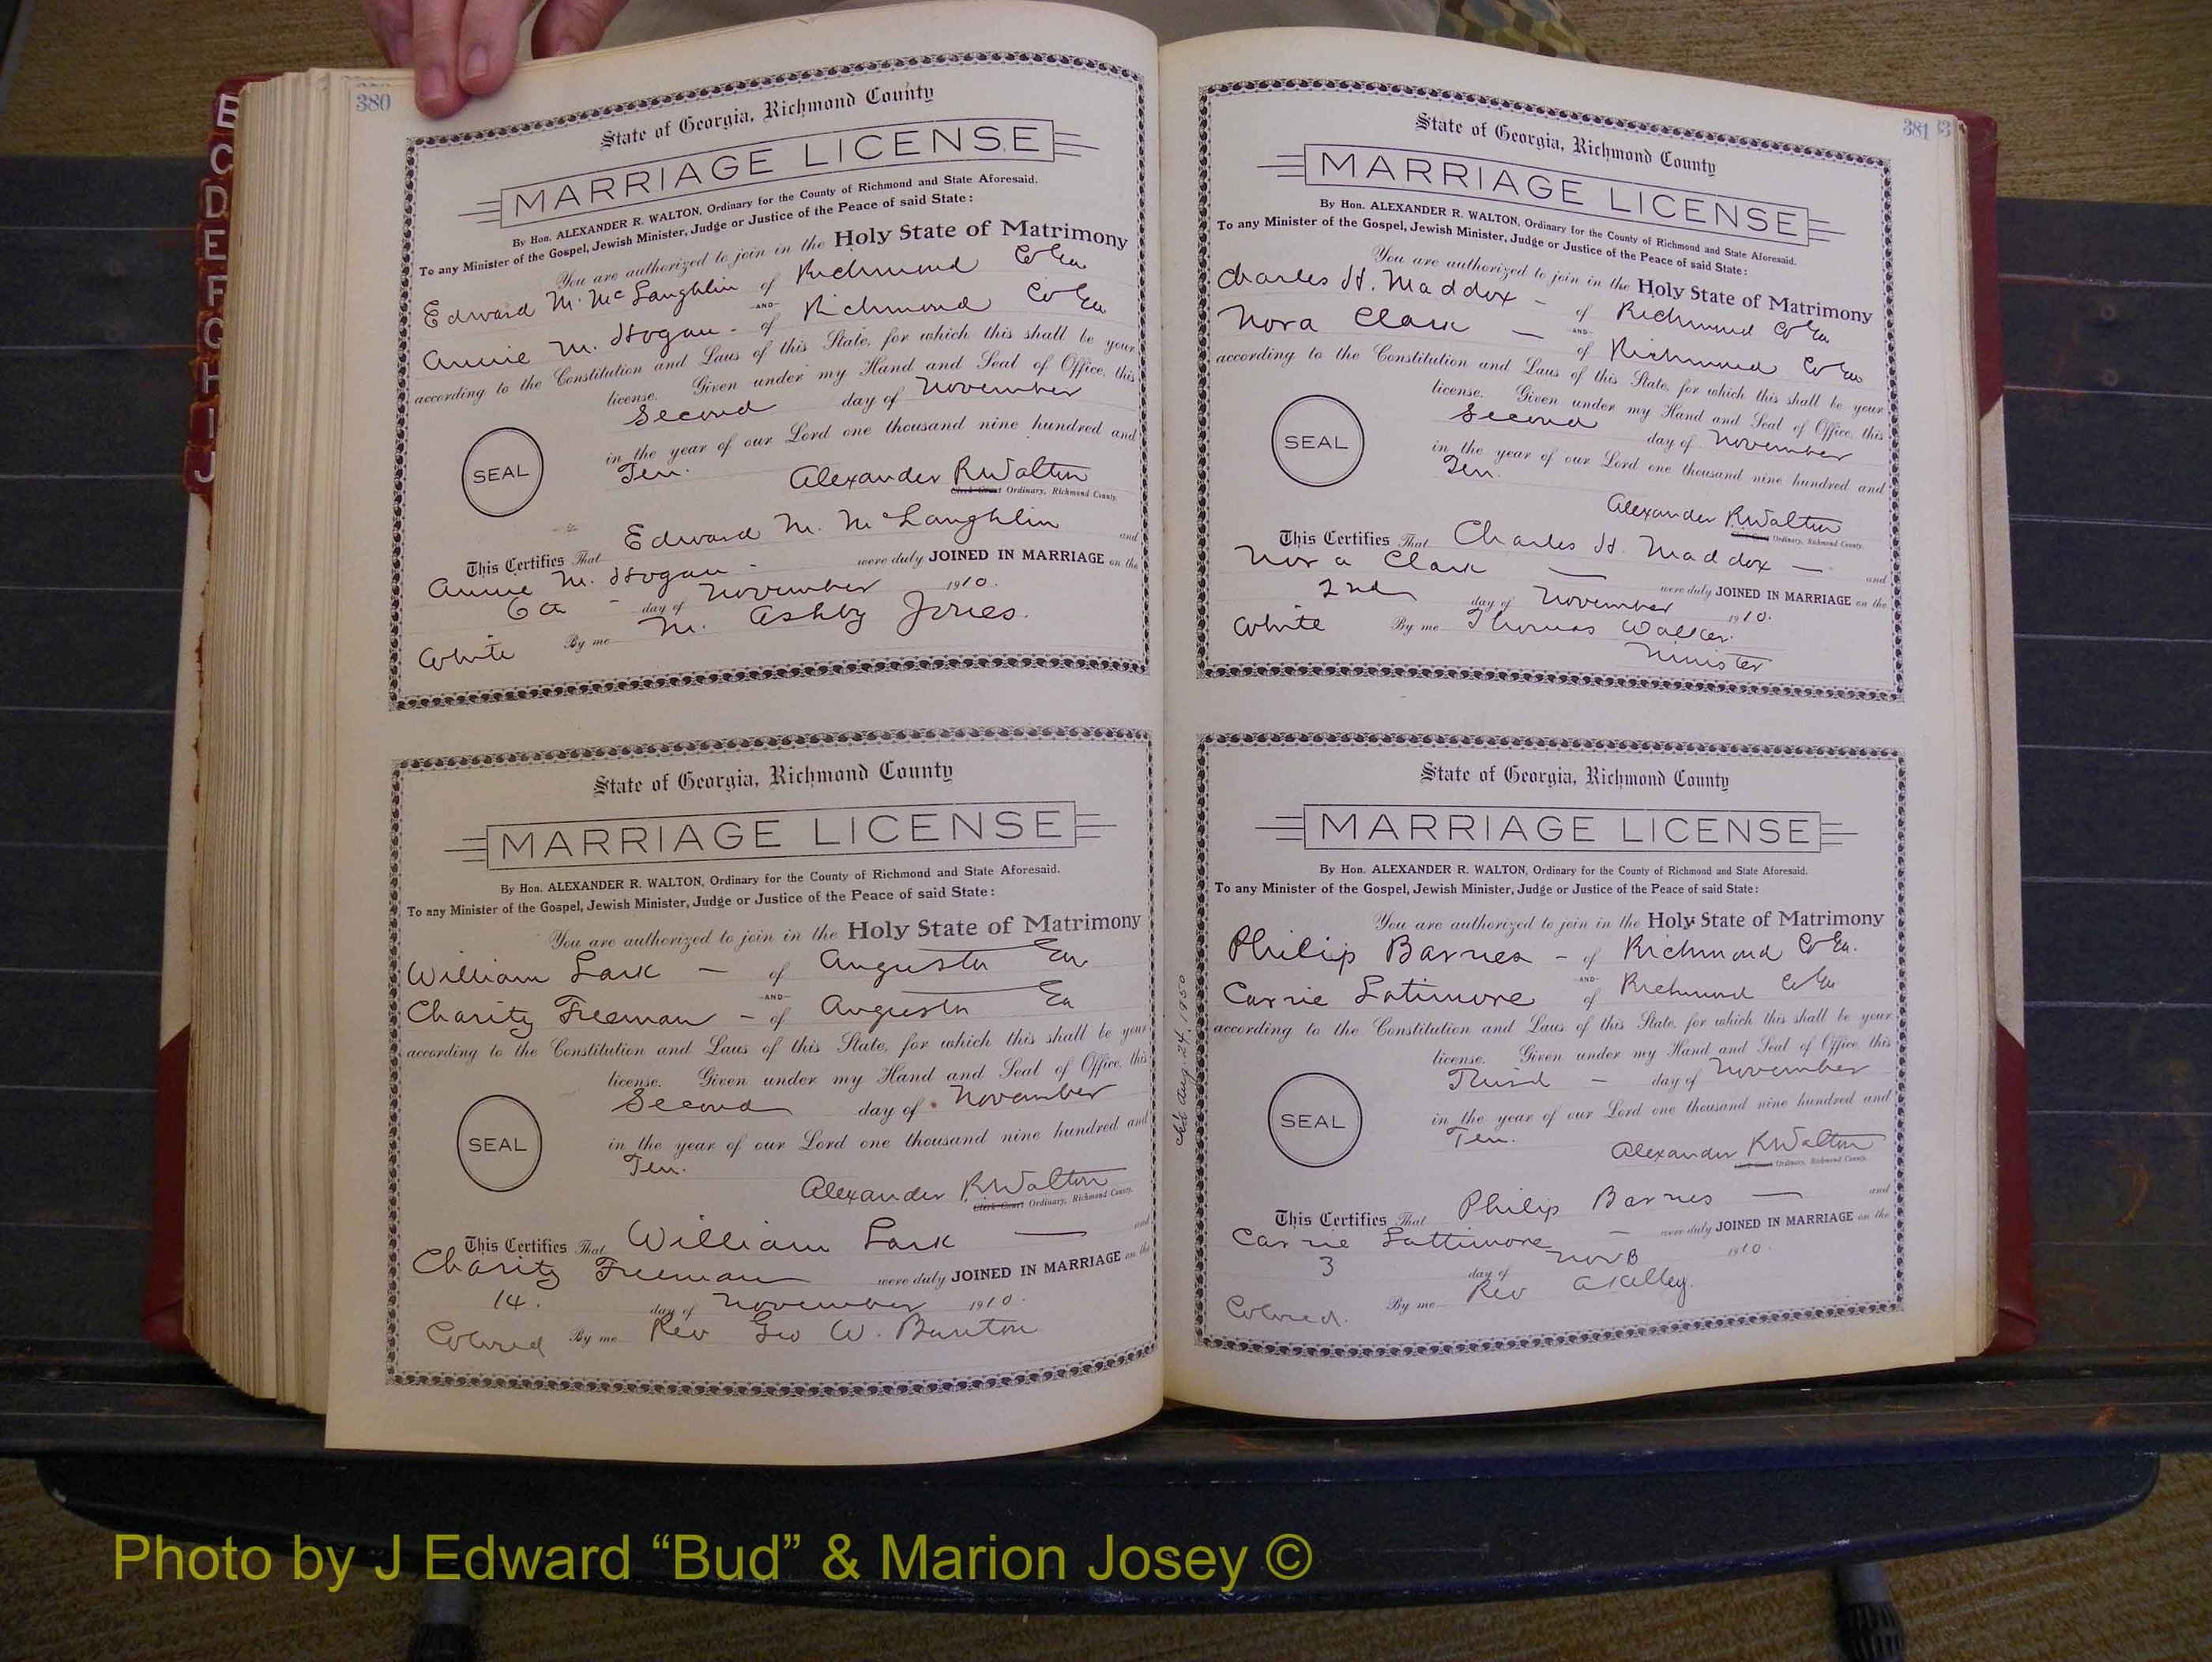 B
C
D
E
F
G
H
I
J
380
State of Georgia, Richmond County
MARRIAGE LICENSE
By Hon. ALEXANDER R. WALTON, Ordinary for the County of Richmond and State Aforesaid.
To any Minister of the Gospel, Jewish Minister, Judge or Justice of the Peace of said State:
You are authorized to join in the Holy State of Matrimony
Edward M. McLaughlin of Richmond Co Ga
-AND-
Annie M. Hogan - of Richmond Co Ga
according to the Constitution and Laws of this State, for which this shall be your
license. Given under my Hand and Seal of Office, this
Second day of November
in the year of our Lord one thousand nine hundred and
Ten.
SEAL
Alexander R Walton
Clerk Court Ordinary, Richmond County.
This Certifies That Edward M. McLaughlin and
Annie M. Hogan - were duly JOINED IN MARRIAGE on the
day of November 1910.
White By me M. Ashby Jones.
State of Georgia, Richmond County
MARRIAGE LICENSE
By Hon. ALEXANDER R. WALTON, Ordinary for the County of Richmond and State Aforesaid.
To any Minister of the Gospel, Jewish Minister, Judge or Justice of the Peace of said State:
You are authorized to join in the Holy State of Matrimony
William Lark - of Augusta Ga
-AND-
Charity Freeman - of Augusta Ga
according to the Constitution and Laws of this State, for which this shall be your
license. Given under my Hand and Seal of Office, this
Second day of November
in the year of our Lord one thousand nine hundred and
Ten.
SEAL
Alexander R Walton
Clerk Court Ordinary, Richmond County.
This Certifies That William Lark - and
Charity Freeman were duly JOINED IN MARRIAGE on the
14. day of November 1910.
Colored By me Rev Geo W. Burton
381
State of Georgia, Richmond County
MARRIAGE LICENSE
By Hon. ALEXANDER R. WALTON, Ordinary for the County of Richmond and State Aforesaid.
To any Minister of the Gospel, Jewish Minister, Judge or Justice of the Peace of said State:
You are authorized to join in the Holy State of Matrimony
Charles H. Maddox - of Richmond Co Ga
-AND-
Nora Clark - of Richmond Co Ga
according to the Constitution and Laws of this State, for which this shall be your
license. Given under my Hand and Seal of Office, this
Second day of November
in the year of our Lord one thousand nine hundred and
Ten.
SEAL
Alexander R Walton
Clerk Court Ordinary, Richmond County.
This Certifies That Charles H. Maddox - and
Nora Clark - were duly JOINED IN MARRIAGE on the
2nd day of November 1910.
White By me Thomas Walker.
Minister
State of Georgia, Richmond County
MARRIAGE LICENSE
By Hon. ALEXANDER R. WALTON, Ordinary for the County of Richmond and State Aforesaid.
To any Minister of the Gospel, Jewish Minister, Judge or Justice of the Peace of said State:
You are authorized to join in the Holy State of Matrimony
Philip Barnes - of Richmond Co Ga.
-AND-
Carrie Latimore of Richmond Co Ga
according to the Constitution and Laws of this State, for which this shall be your
license. Given under my Hand and Seal of Office, this
Third - day of November
in the year of our Lord one thousand nine hundred and
Ten.
SEAL
Alexander R Walton
Clerk Court Ordinary, Richmond County.
This Certifies That Philip Barnes - and
Carrie Lattimore - were duly JOINED IN MARRIAGE on the
3 day of 1910.
Colored. By me Rev
Aug. 24, 1950
Photo by J Edward “Bud” & Marion Josey ©